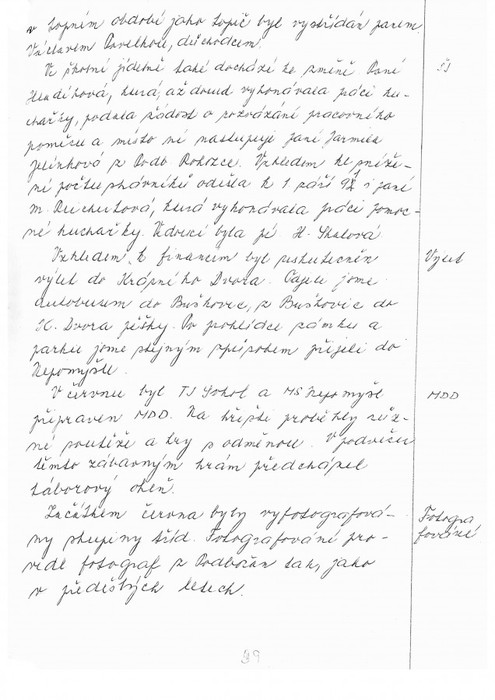 v topném období jako topič byl vystřídán panem
Václavem Pavelkou, důchodcem.
Ve školní jídelně také dochází ke změně. Paní ŠJ
Hendrichová, která, až dosud vykonávala práci ku-
chařky, podala žádost o rozvázání pracovního
poměru a místo ní nastupuje paní Jarmila
Jelínková z Podb. Rohozce. Vzhledem ke sníže-
ní počtu strávníků odešla k 1. září i paní
M. Reichertová, která vykonávala práci pomoc-
né kuchařky. Vedoucí byla pí H. Skalová.
Vzhledem k financím byl uskutečněn Výlet
výlet do Krásného Dvora. Cajeli jsme
autobusem do Buškovic, z Buškovic do
K. Dvora pěšky. Po prohlídce zámku a
parku jsme stejným způsobem přijeli do
Nepomyšle.
V červnu byl TJ Sokol a MŠ Nepomyšl MDD
připraven MDD. Na hřišti proběhly růz-
né soutěže a hry s odměnou. V podvečer
těmto zábavným hrám předcházel
táborový oheň.
Začátkem června byly vyfotografová- Fotogra
ny skupiny tříd. Fotografování pro- fování
vedl fotograf z Podbořan tak, jako
v předešlých letech.